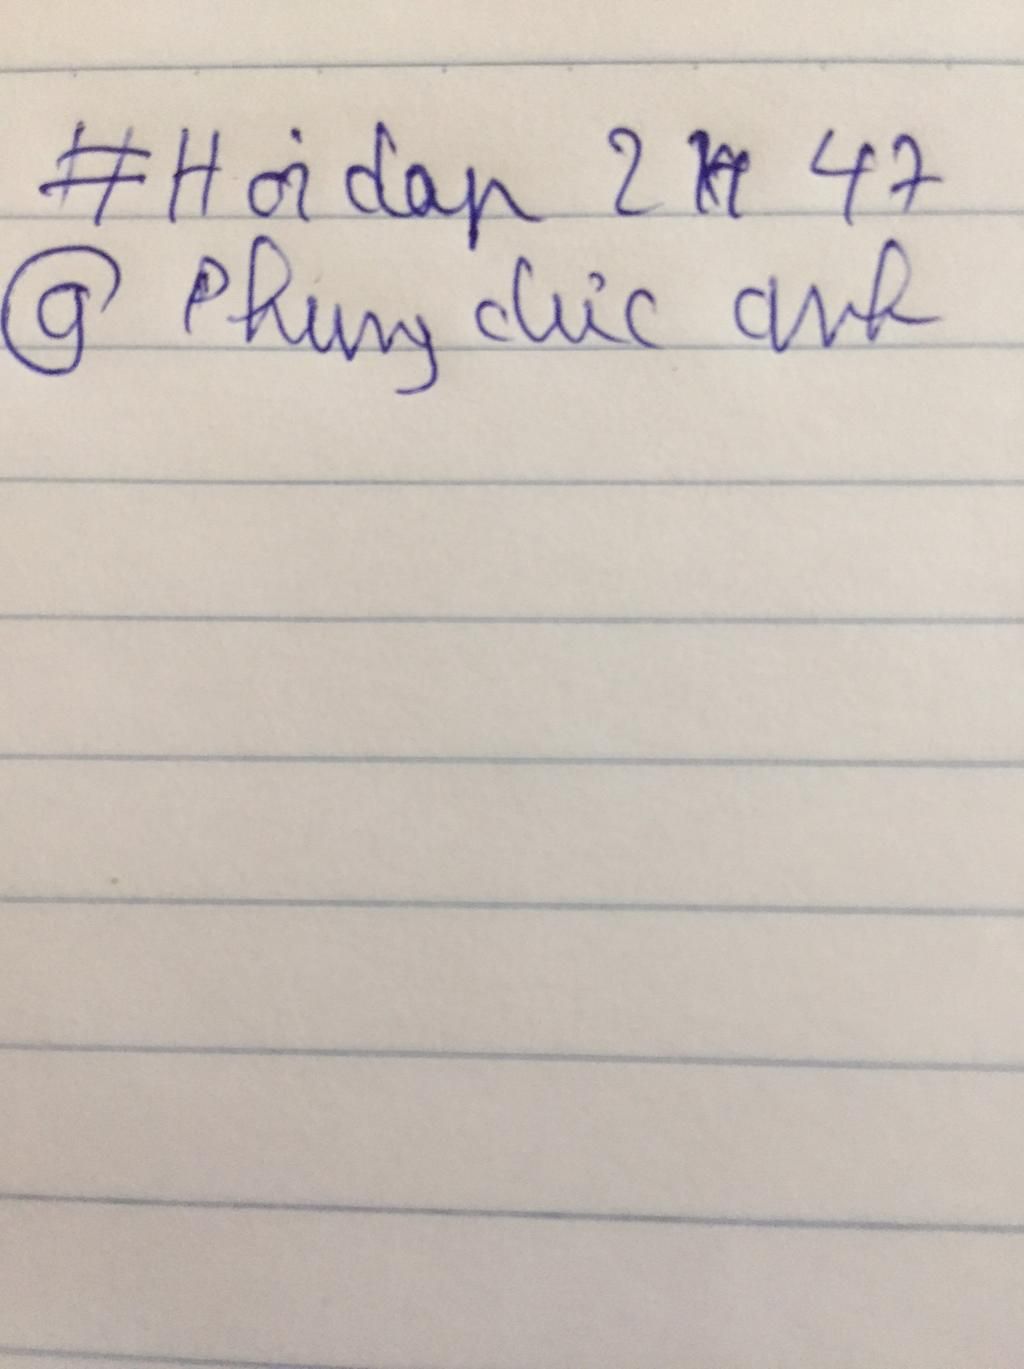 #Hoidap 247
@ Phung duc anh